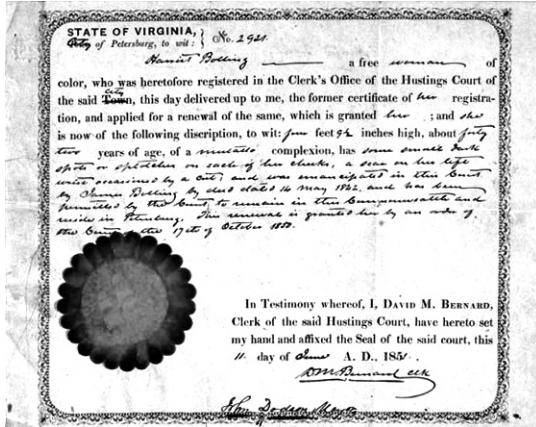 STATE OF VIRGINIA,
City of Petersburg, to wit: } No. 2921
Harriet Bolling a free woman of
color, who was heretofore registered in the Clerk's Office of the Hustings Court of
the said Town, city this day delivered up to me, the former certificate of her registra-
tion, and applied for a renewal of the same, which is granted her ; and she
is now of the following discription, to wit: four feet 9½ inches high, about forty
two years of age, of a mulatto complexion, has some small dark
spots or splotches on each of her cheeks, a scar on her left
wrist occasioned by a cut; and was emancipated in this Court
by James Bolling by deed dated 14 May 1842, and has been
permitted by the Court to remain in this Commonwealth and
reside in Petersburg. This renewal is granted her by an order of
the Court of the 17th of October 1850.
In Testimony whereof, I, DAVID M. BERNARD,
Clerk of the said Hustings Court, have hereto set
my hand and affixed the Seal of the said court, this
11 day of June A. D., 1851.
DM Bernard clk